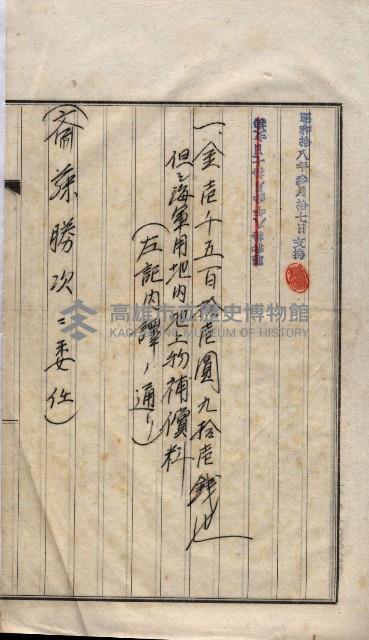 昭和拾八年參月拾七日支拂
一、金壱千五百拾壱圓九拾壱錢也
但シ海軍用地内地上物補償料
(左記内譯ノ通リ)
(斎藤勝次ニ委任)
高雄市立歷史博物館
KAOHSIUNG MUSEUM OF HISTORY